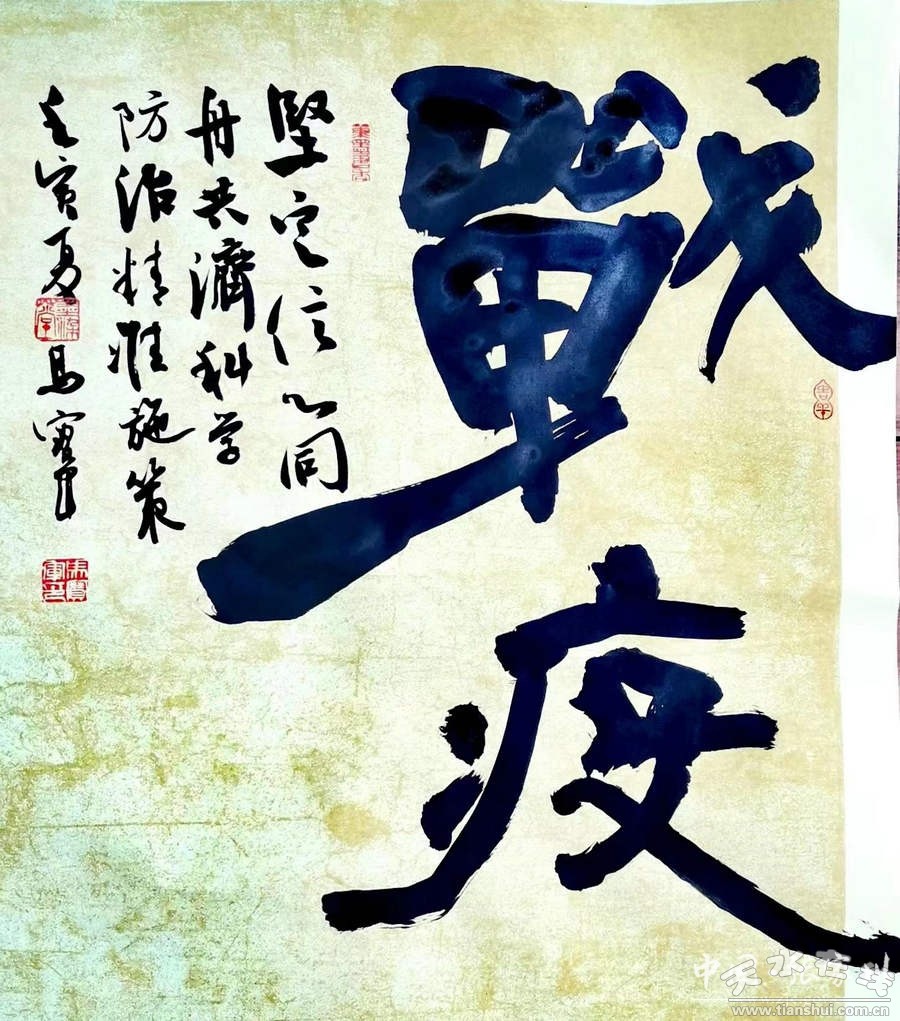 戰疫
坚定信心同
舟共濟科学
防治精准施策
壬寅夏 馬寶軍
中天水在线
www.tianshui.com.cn